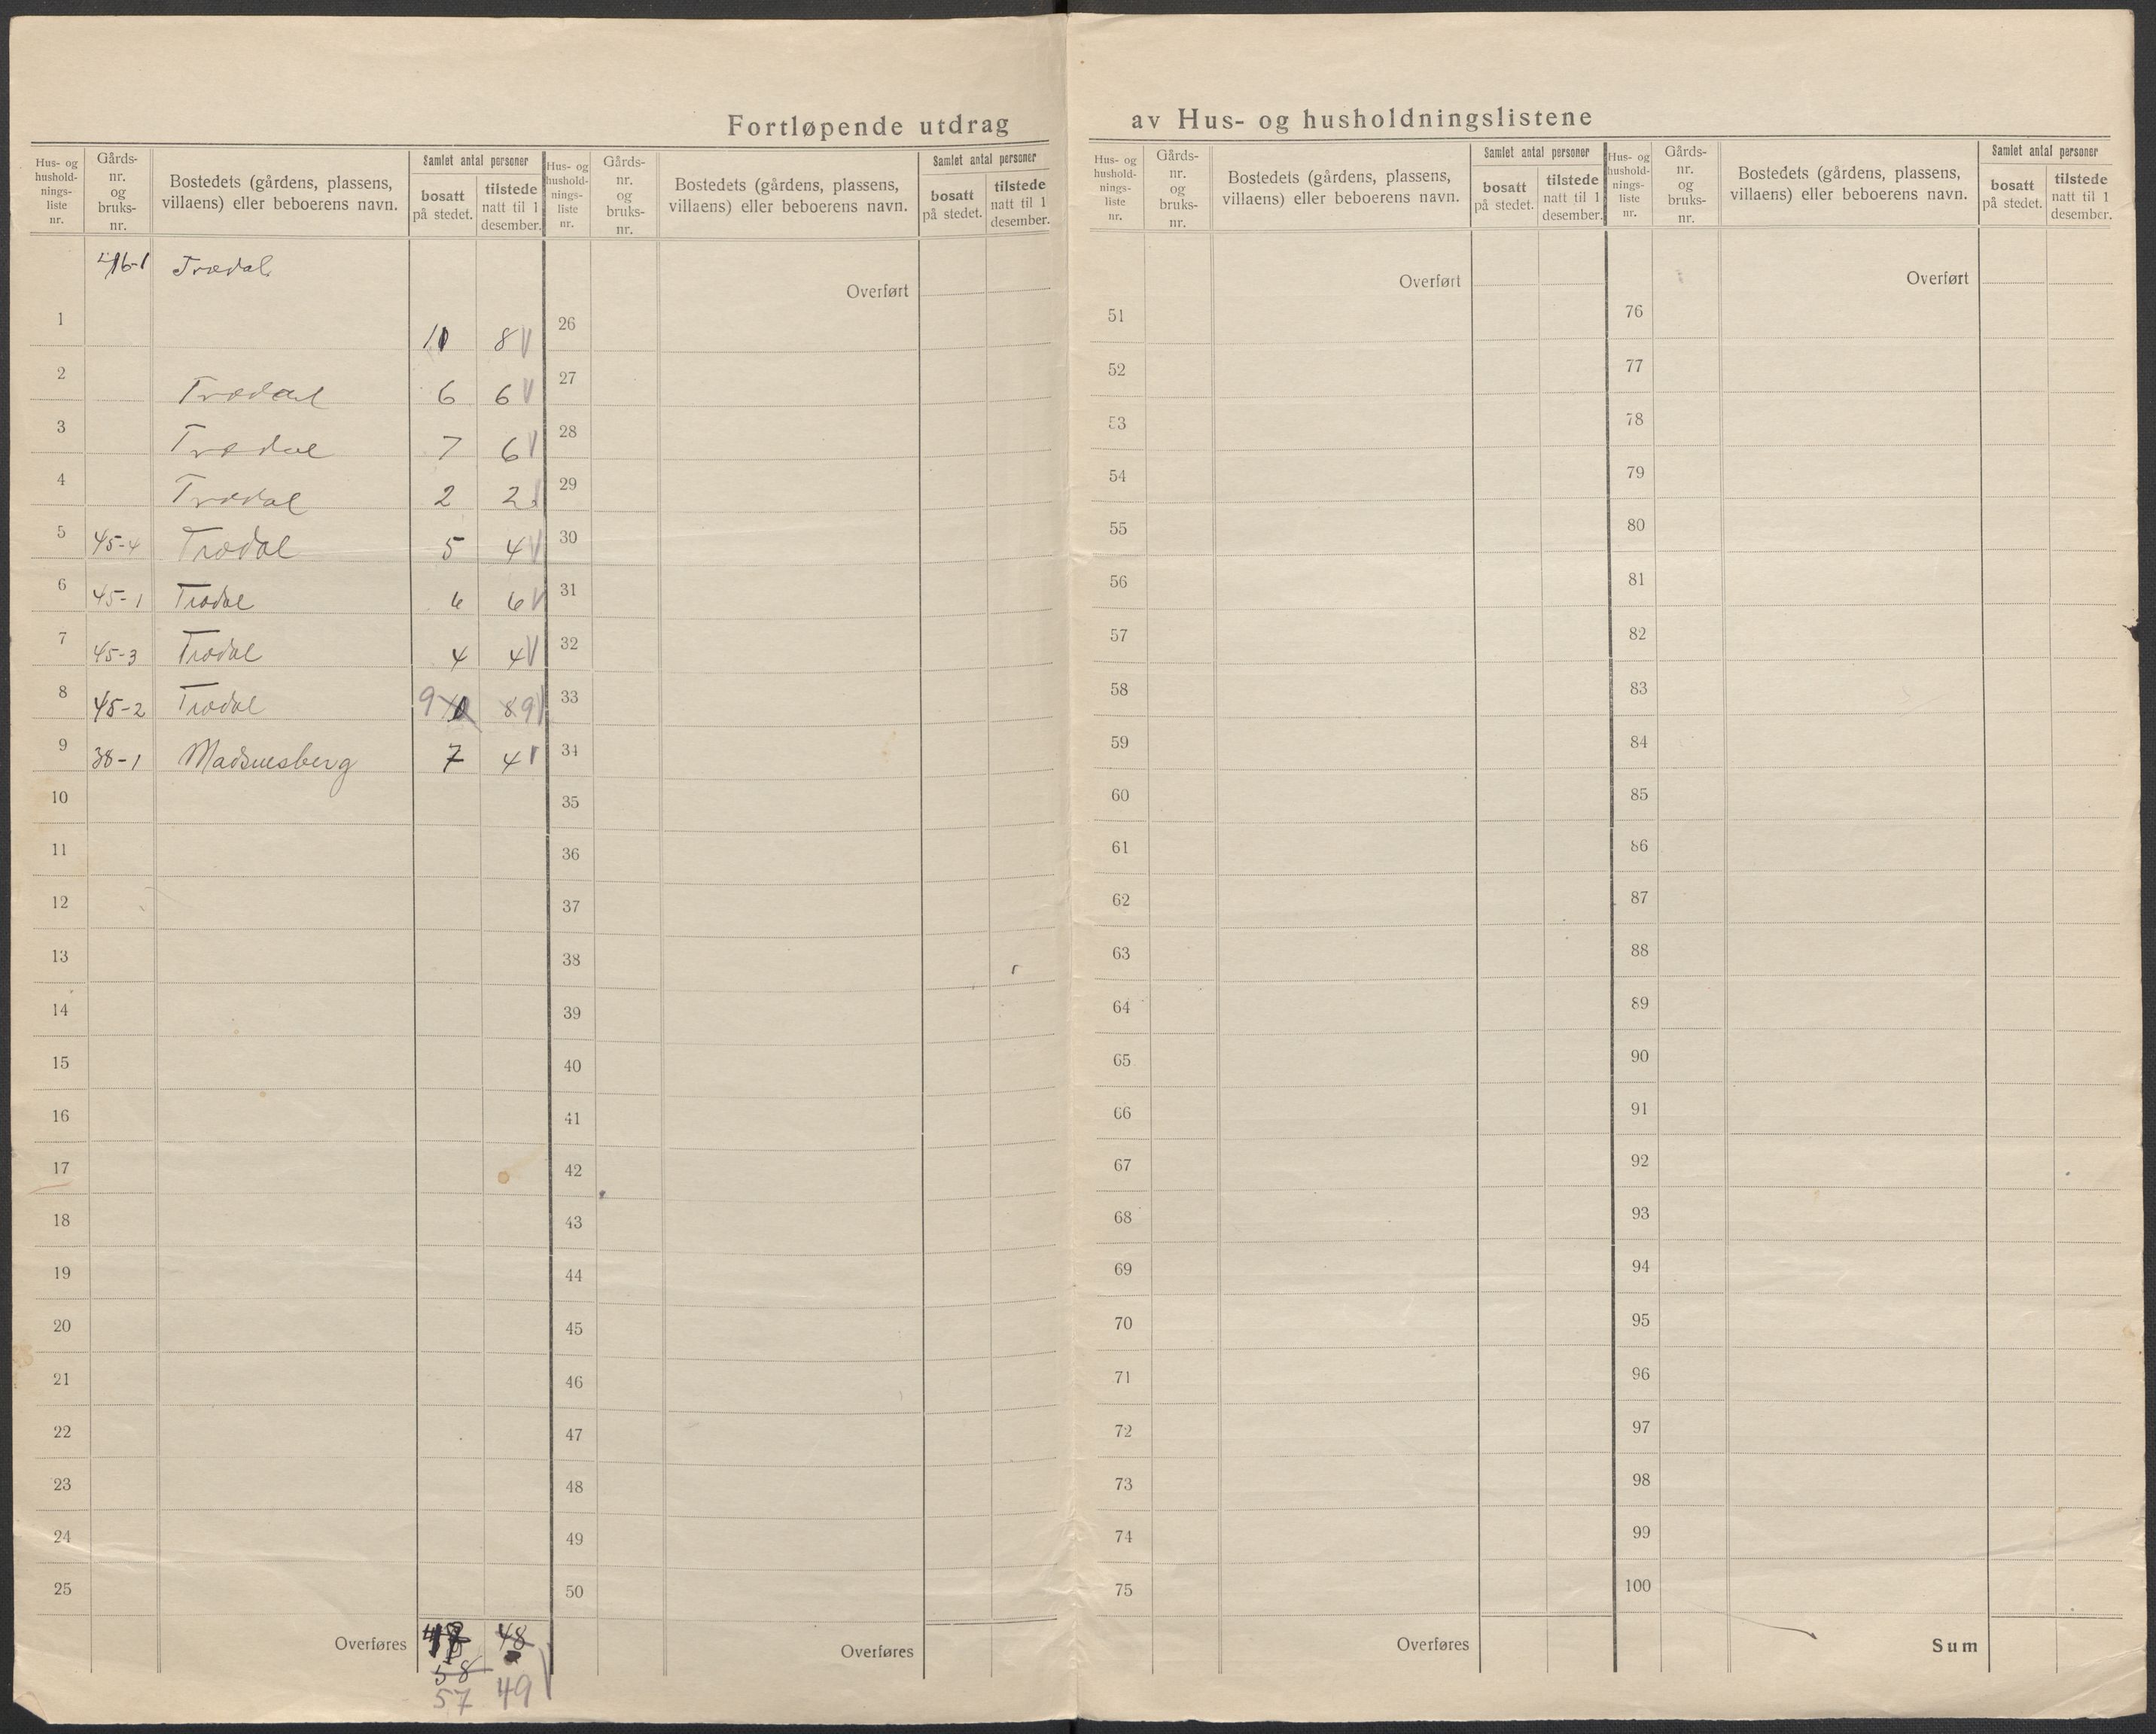 Fortløpende utdrag av Hus- og husholdningslistene
Hus- og hushold-nings-liste nr. Gårds-nr. og bruks-nr. Bostedets (gårdens, plassens, villaens) eller beboerens navn. Samlet antal personer bosatt på stedet. tilstede natt til 1 desember.
Hus- og hushold-nings-liste nr. Gårds-nr. og bruks-nr. Bostedets (gårdens, plassens, villaens) eller beboerens navn. Samlet antal personer bosatt på stedet. tilstede natt til 1 desember.
Hus- og hushold-nings-liste nr. Gårds-nr. og bruks-nr. Bostedets (gårdens, plassens, villaens) eller beboerens navn. Samlet antal personer bosatt på stedet. tilstede natt til 1 desember.
Hus- og hushold-nings-liste nr. Gårds-nr. og bruks-nr. Bostedets (gårdens, plassens, villaens) eller beboerens navn. Samlet antal personer bosatt på stedet. tilstede natt til 1 desember.
46-1 Trædal
1 8
2 Trædal 6 6
3 Trædal 7 6
4 Trædal 2 2
5 45-4 Trædal 5 4
6 45-1 Trædal 6 6
7 45-3 Trædal 4 4
8 45-2 Trædal 9 10 8 9
9 38-1 Madsuesberg 7 4
10
11
12
13
14
15
16
17
18
19
20
21
22
23
24
25
Overføres 48
58
57 49
Overført
26
27
28
29
30
31
32
33
34
35
36
37
38
39
40
41
42
43
44
45
46
47
48
49
50
Overføres
Overført
51
52
53
54
55
56
57
58
59
60
61
62
63
64
65
66
67
68
69
70
71
72
73
74
75
Overføres
Overført
76
77
78
79
80
81
82
83
84
85
86
87
88
89
90
91
92
93
94
95
96
97
98
99
100
Sum